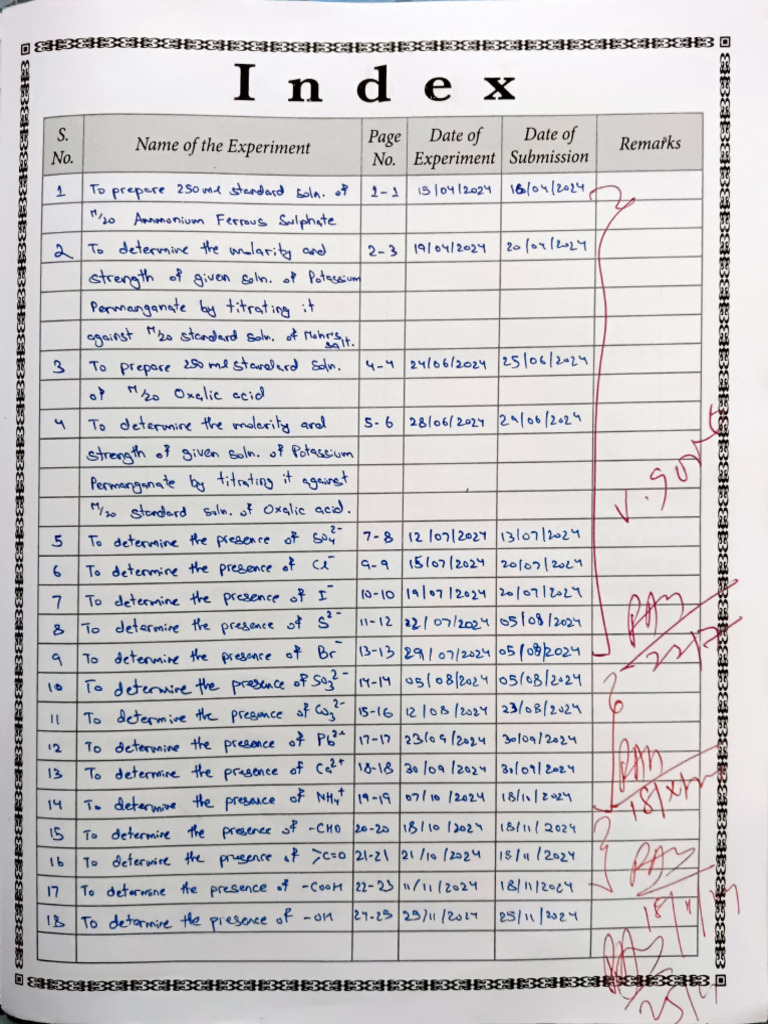 Index
S. No. Name of the Experiment Page No. Date of Experiment Date of Submission Remarks
1 To prepare 250ml standard soln. of 1-1 15/04/2024 18/04/2024
M/20 Ammonium Ferrous Sulphate
2 To determine the molarity and 2-3 19/04/2024 20/04/2024
strength of given soln. of Potassium
Permanganate by titrating it
against M/20 standard soln. of Mohr's salt.
3 To prepare 250ml standard soln. 4-4 24/06/2024 25/06/2024
of M/20 Oxalic acid
4 To determine the molarity and 5-6 28/06/2024 29/06/2024
strength of given soln. of Potassium
Permanganate by titrating it against
M/20 standard soln. of Oxalic acid.
V. good
5 To determine the presence of SO₄²⁻ 7-8 12/07/2024 13/07/2024
6 To determine the presence of Cl⁻ 9-9 15/07/2024 20/07/2024
7 To determine the presence of I⁻ 10-10 19/07/2024 20/07/2024
8 To determine the presence of S²⁻ 11-12 22/07/2024 05/08/2024
9 To determine the presence of Br⁻ 13-13 29/07/2024 05/08/2024
10 To determine the presence of SO₃²⁻ 14-14 05/08/2024 05/08/2024
11 To determine the presence of CO₃²⁻ 15-16 12/08/2024 23/08/2024
12 To determine the presence of Pb²⁺ 17-17 23/09/2024 30/09/2024
13 To determine the presence of Ca²⁺ 18-18 30/09/2024 30/09/2024
14 To determine the presence of NH₄⁺ 19-19 07/10/2024 18/10/2024
15 To determine the presence of -CHO 20-20 18/10/2024 18/11/2024
16 To determine the presence of >C=O 21-21 21/10/2024 18/11/2024
17 To determine the presence of -COOH 22-23 11/11/2024 18/11/2024
18 To determine the presence of -OH 24-25 25/11/2024 25/11/2024